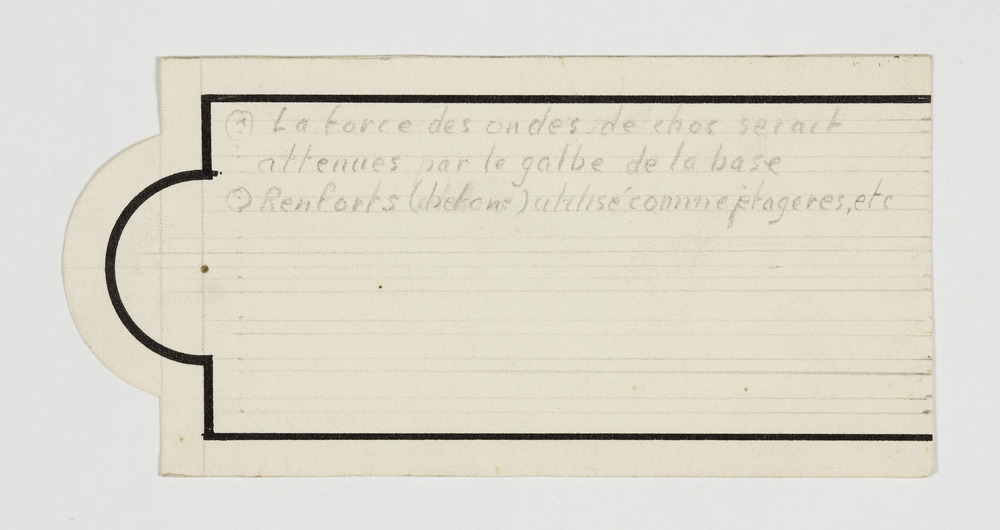 ① La force des ondes de choc serait
attenues par le galbe de la base
② Renforts (béton) utilisé comme étageres, etc